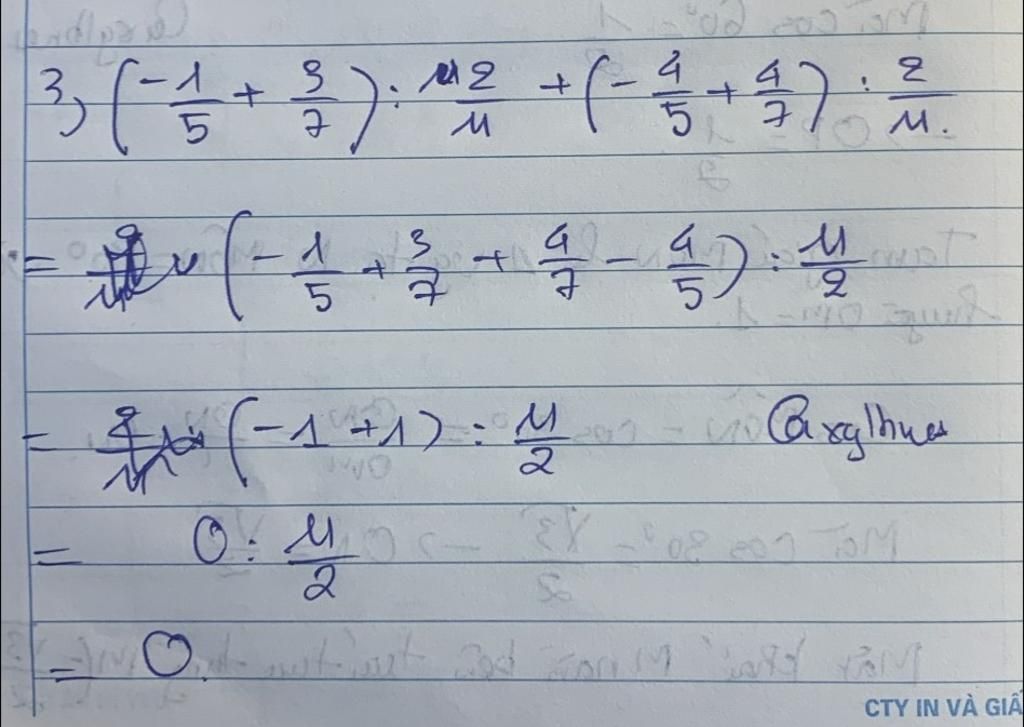 3) (-1/5 + 3/7) : 2/11 + (-4/5 + 4/7) : 2/11.
= (-1/5 + 3/7 + 4/7 - 4/5) : 11/2
= (-1 + 1) : 11/2
= 0 : 11/2
= 0.
CTY IN VÀ GIẤ